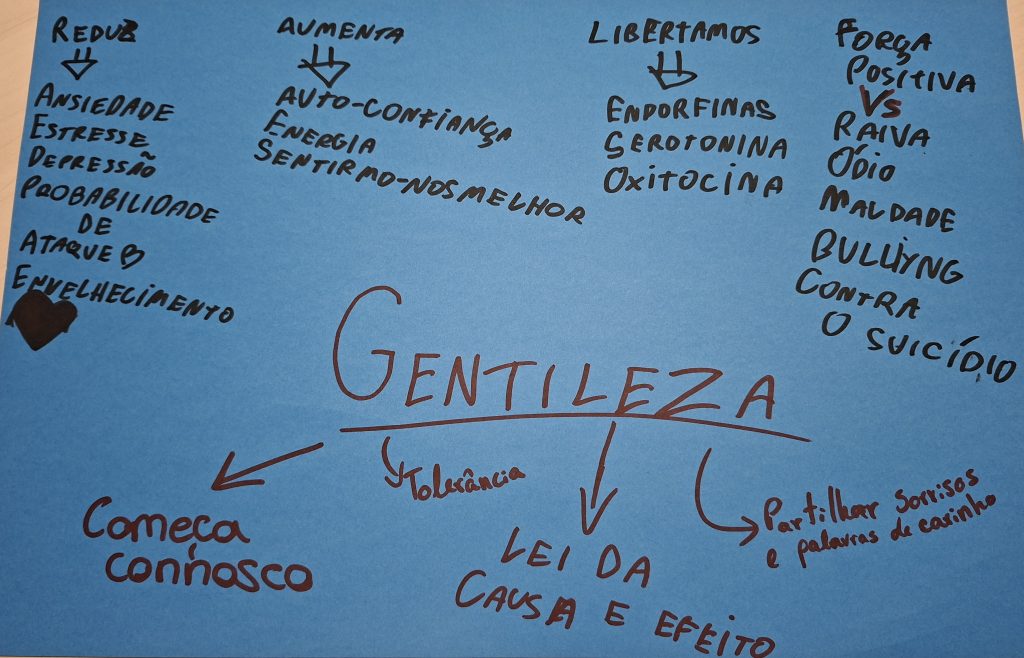 REDUZ
ANSIEDADE
ESTRESSE
DEPRESSÃO
PROBABILIDADE
DE
ATAQUE
ENVELHECIMENTO
AUMENTA
AUTO-CONFIANÇA
ENERGIA
SENTIRMO-NOS MELHOR
LIBERTAMOS
ENDORFINAS
SEROTONINA
OXITOCINA
FORÇA
POSITIVA
VS
RAIVA
ÓDIO
MALDADE
BULLIYNG
CONTRA
O SUICÍDIO
GENTILEZA
Começa
connosco
Tolerância
LEI DA
CAUSA E EFEITO
Partilhar sorrisos
e palavras de carinho